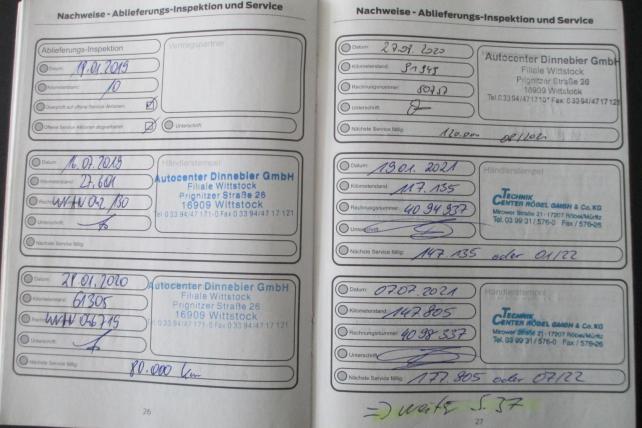 Nachweise - Ablieferungs-Inspektion und Service
Ablieferungs-Inspektion
Vertragspartner
Datum: 18.01.2019
Kilometerstand: 10
Überprüft auf offene Service Aktionen:
Offene Service Aktionen abgearbeitet:
Unterschrift
Datum: 16.07.2019
Kilometerstand: 27.601
Unterschrift:
Nächste Service fällig:
Händlerstempel
Autocenter Dinnebier GmbH
Filiale Wittstock
Prignitzer Straße 26
16909 Wittstock
Tel 033 94/47 171-0 Fax 0 33 94/47 17 121
Datum: 21.01.2020
Kilometerstand: 61305
Unterschrift:
Nächste Service fällig: 80.000 km
Händlerstempel
Autocenter Dinnebier GmbH
Filiale Wittstock
Prignitzer Straße 26
16909 Wittstock
26
Nachweise - Ablieferungs-Inspektion und Service
Datum: 27.08.2020
Kilometerstand: 91949
Rechnungsnummer:
Unterschrift:
Nächste Service fällig:
Autocenter Dinnebier GmbH
Filiale Wittstock
Prignitzer Straße 26
16909 Wittstock
Datum: 19.01.2021
Kilometerstand: 117.135
Rechnungsnummer: 4094937
Nächste Service fällig: 147 135 oder 01/22
Händlerstempel
TECHNIK
CENTER RÖBEL GMBH & Co. KG
Mirower Straße 21 · 17207 Röbel/Müritz
Tel. 03 99 31 / 576-0 Fax / 576-26
Datum: 07.07.2021
Kilometerstand: 147805
Rechnungsnummer: 4098337
Unterschrift:
Nächste Service fällig: 177.805 oder 07/22
Händlerstempel
TECHNIK
CENTER RÖBEL GMBH & Co. KG
Mirower Straße 21 · 17207 Röbel/Müritz
Tel. 03 99 31 / 576-0 Fax / 576-26
=> weiter S. 37
27